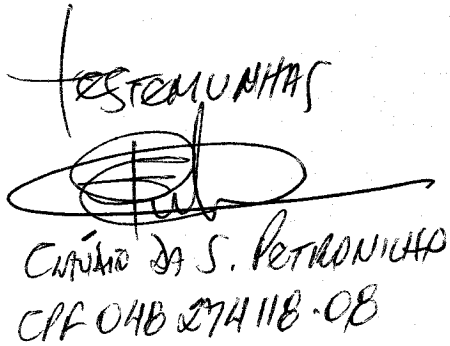 TESTEMUNHAS
CLÁUDIO DA S. PETRONILHO
CPF 048 274 118-08